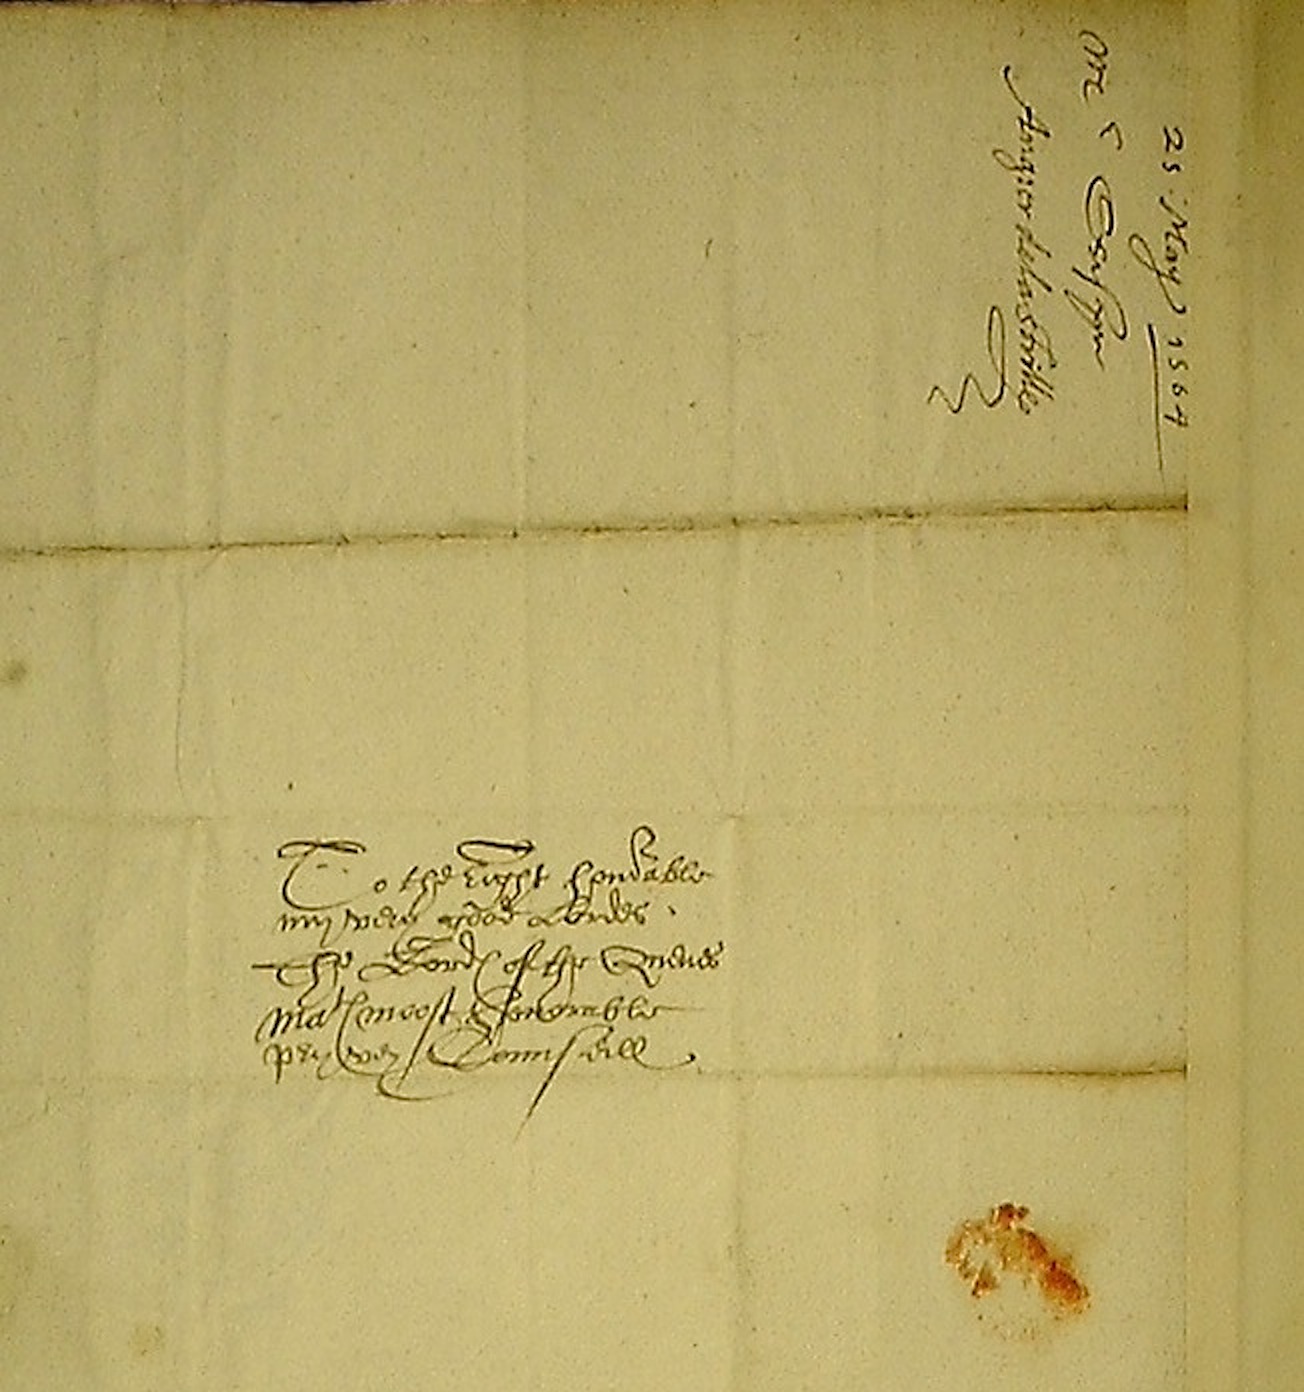 25 May 1564
Mr
Anger de la Strille
To the right honorable
my verey good Lordes
The Lord of the Quenes
Mat most honorable
pryvey Counseill